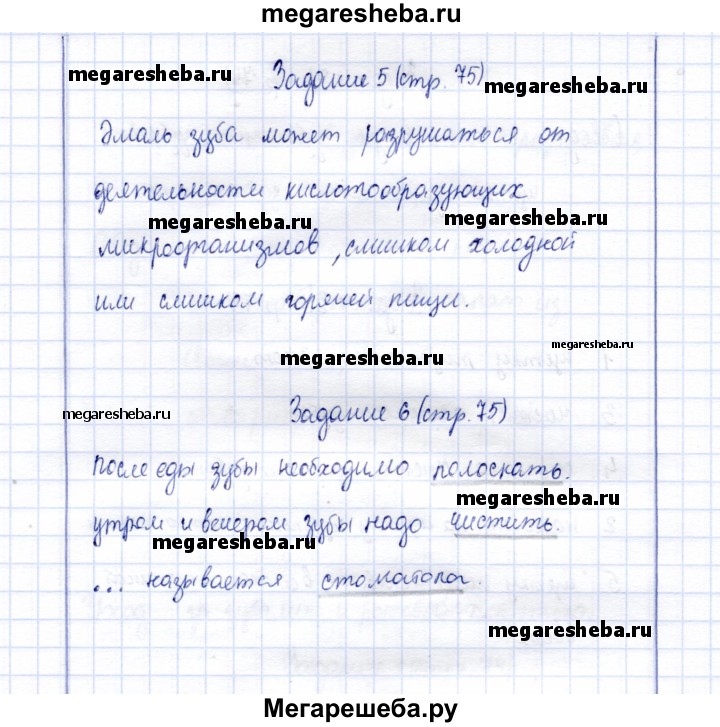 megaresheba.ru
Задание 5 (стр. 75)
megaresheba.ru
megaresheba.ru
Эмаль зуба может разрушаться от
деятельности кислотообразующих
megaresheba.ru
megaresheba.ru
микроорганизмов, слишком холодной
или слишком горячей пищи.
megaresheba.ru
megaresheba.ru
megaresheba.ru
Задание 6 (стр. 75)
После еды зубы необходимо полоскать.
megaresheba.ru
утром и вечером зубы надо чистить.
megaresheba.ru
... называется стоматолог.
megaresheba.ru
Мегарешеба.ру